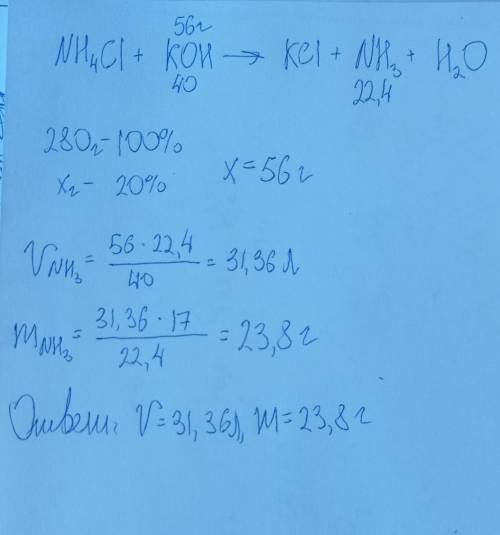 56г
NH₄Cl + KOH → KCl + NH₃ + H₂O
40 22,4
280г - 100%
xг - 20% x = 56 г
V NH₃ = 56 · 22,4 / 40 = 31,36 л
m NH₃ = 31,36 · 17 / 22,4 = 23,8 г
Ответ: V = 31,36л, m = 23,8 г